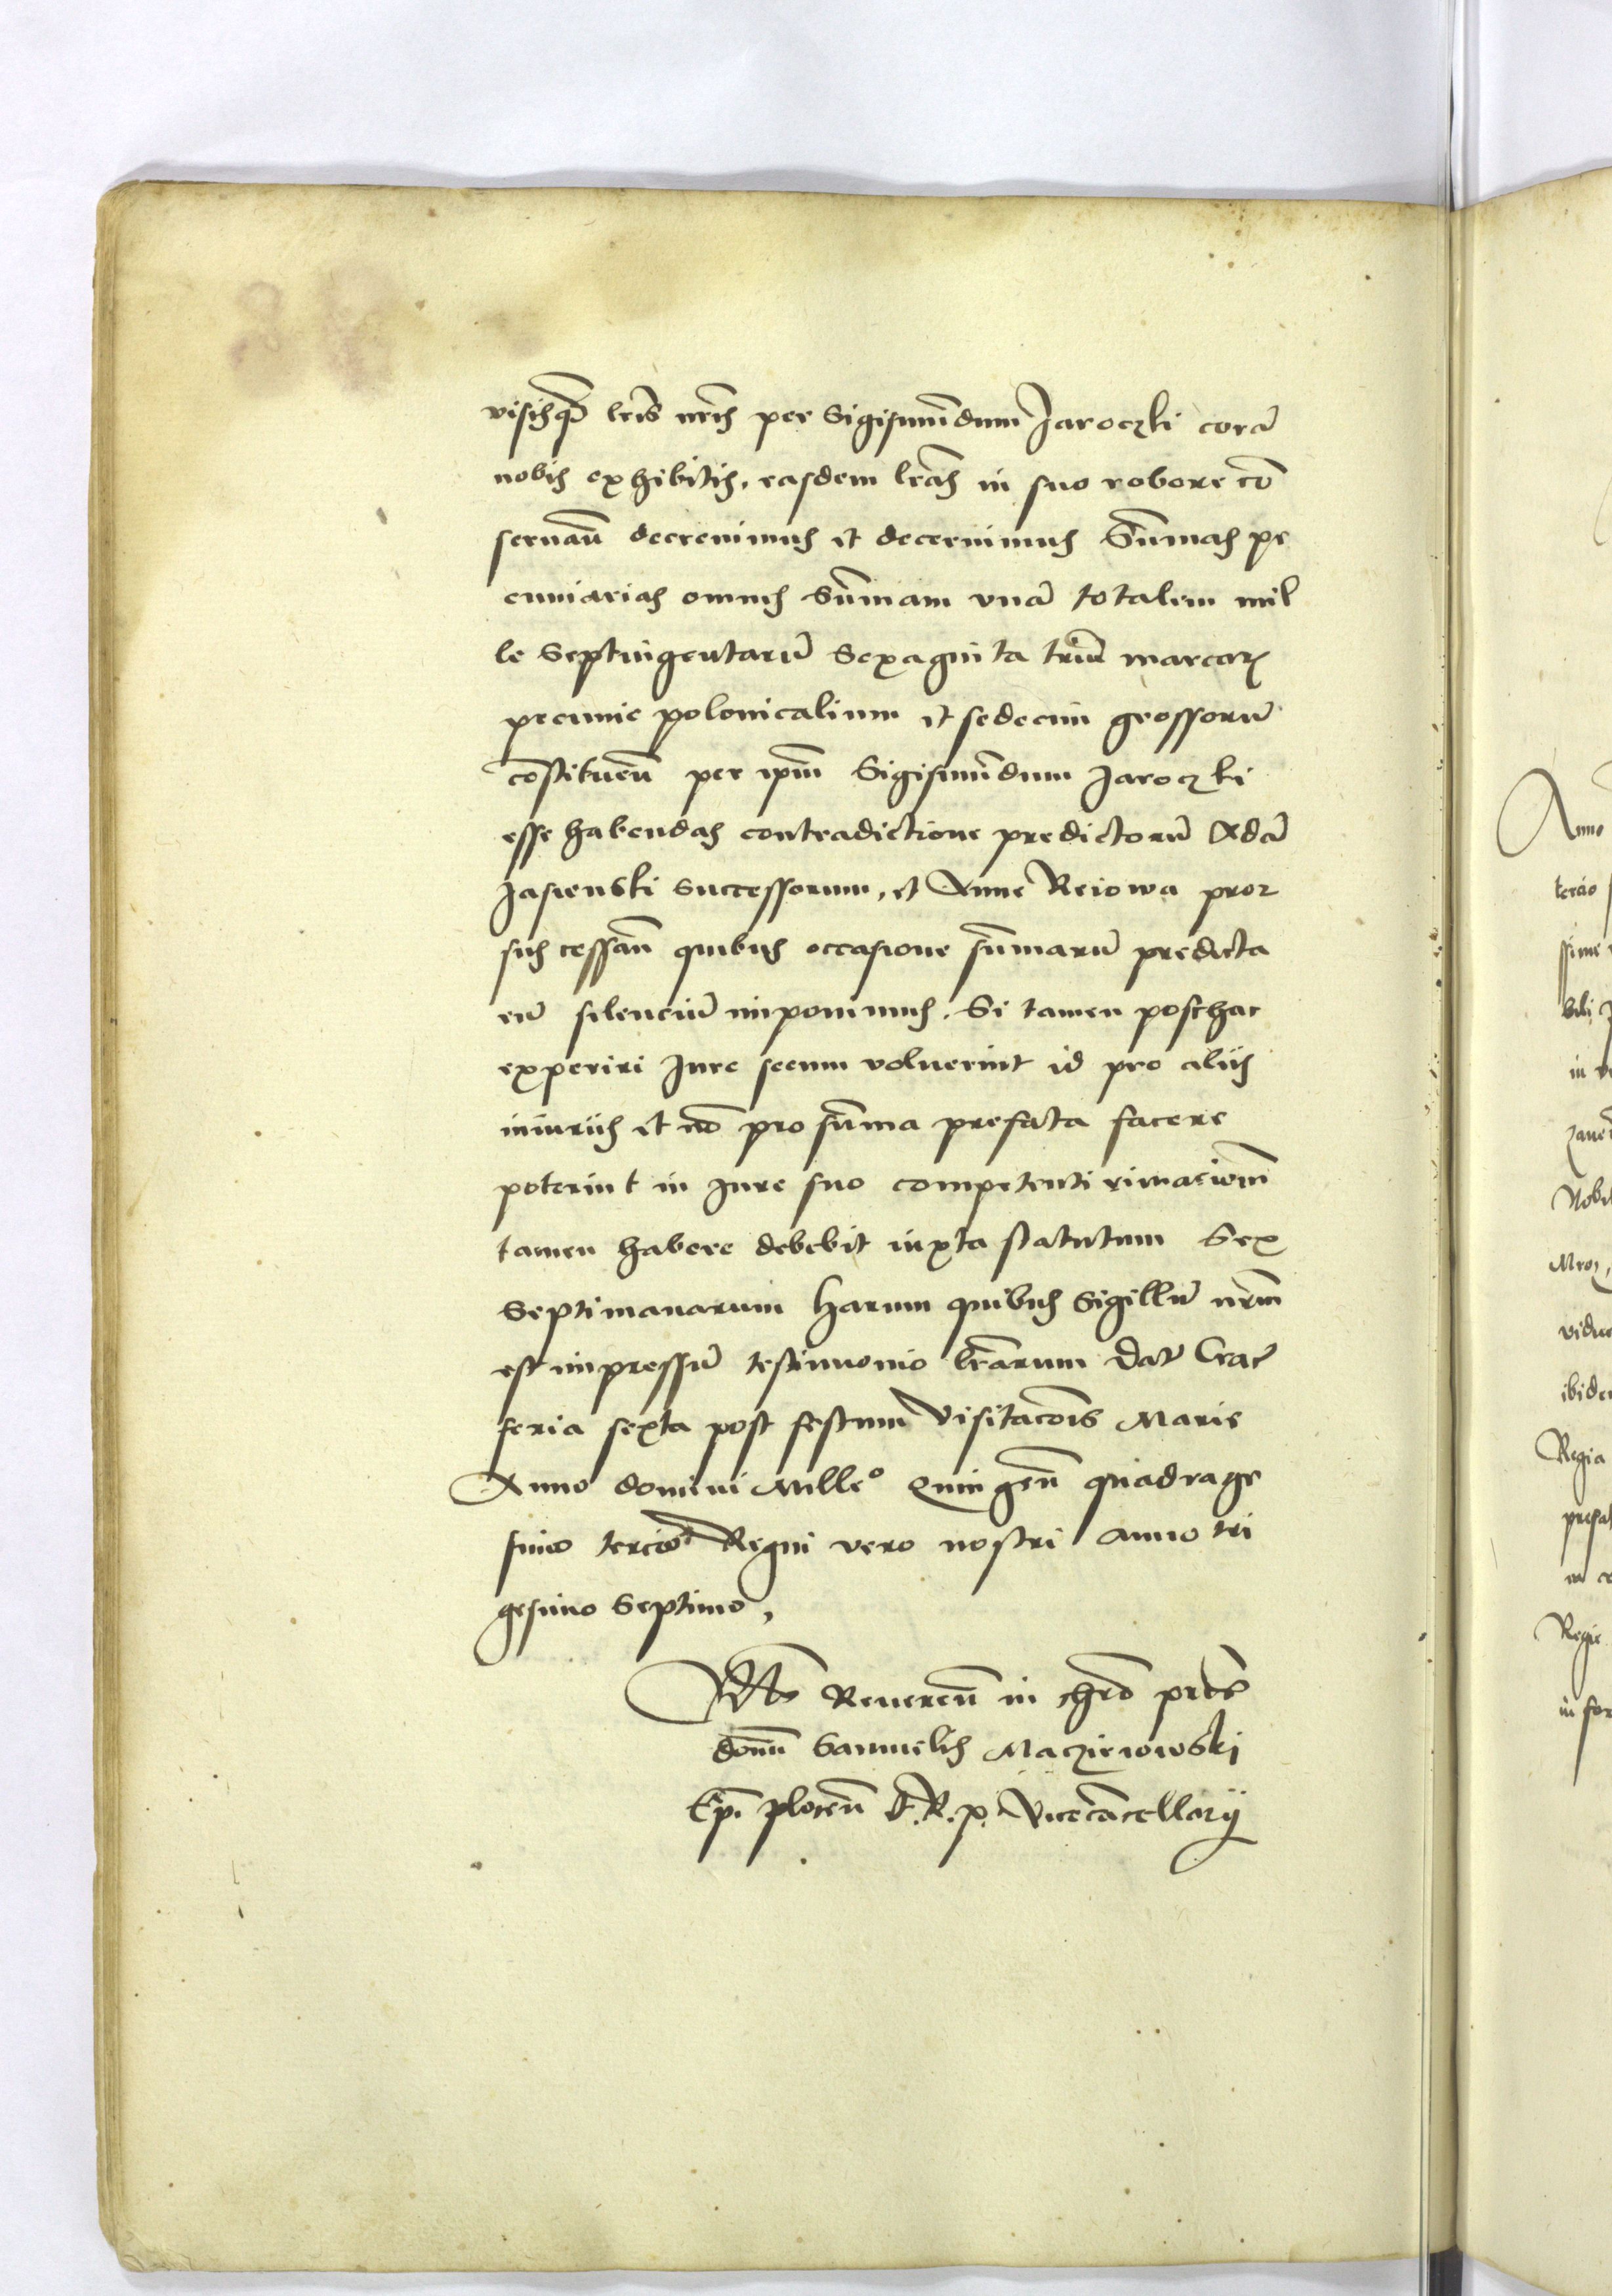 visisq̃ lr̃is nr̃is per Sigismũdum Jaroczki corã
nobis exhibitis, easdem lr̃as in suo robore cõ
seruañ decreuimus et decernimus Sũmas pe
cuniarias omnes Sũmam vnã totalem mil
le Septingentarũ Sexaginta triũ marcarꝝ
pecunie polonicalium et sedecim grossorũ
cõstitueñ per ip̃m Sigismũdum Jaroczki
esse habendas contradictione predictorũ Adã
Jasienski Successorum, et Anne Reiowa pror
sus cessañ quibus occasione sũmarũ predicta
rũ silenciũ imponimus. Si tamen posthac
experiri Jure secum voluerint id pro aliis
iniuriis et nõ pro sũma prefata facere
poterint in Jure suo competenti
tamen habere debebit iuxta statutum Sex
Septimanarum Harum quibus Sigillũ nr̃m
est impressũ testimonio lr̃arum Dat̃ Crac̃
feria sexta post festum Visitac̃ois Marie
Anno domini Milleº Quingeñ quadrage
simo tercio Regni vero nostri anno tri
gesimo Septimo,
Reuereñ in chr̃o pr̃is
domĩ Samuelis Macziewowski
Ep̃i ploceñ R. p. Vicecãcellarij
Anno
tercio
ssime
bili
in
Nobil
Mroz,
vidue
ibidem
Regia
prefat
Regie
in for